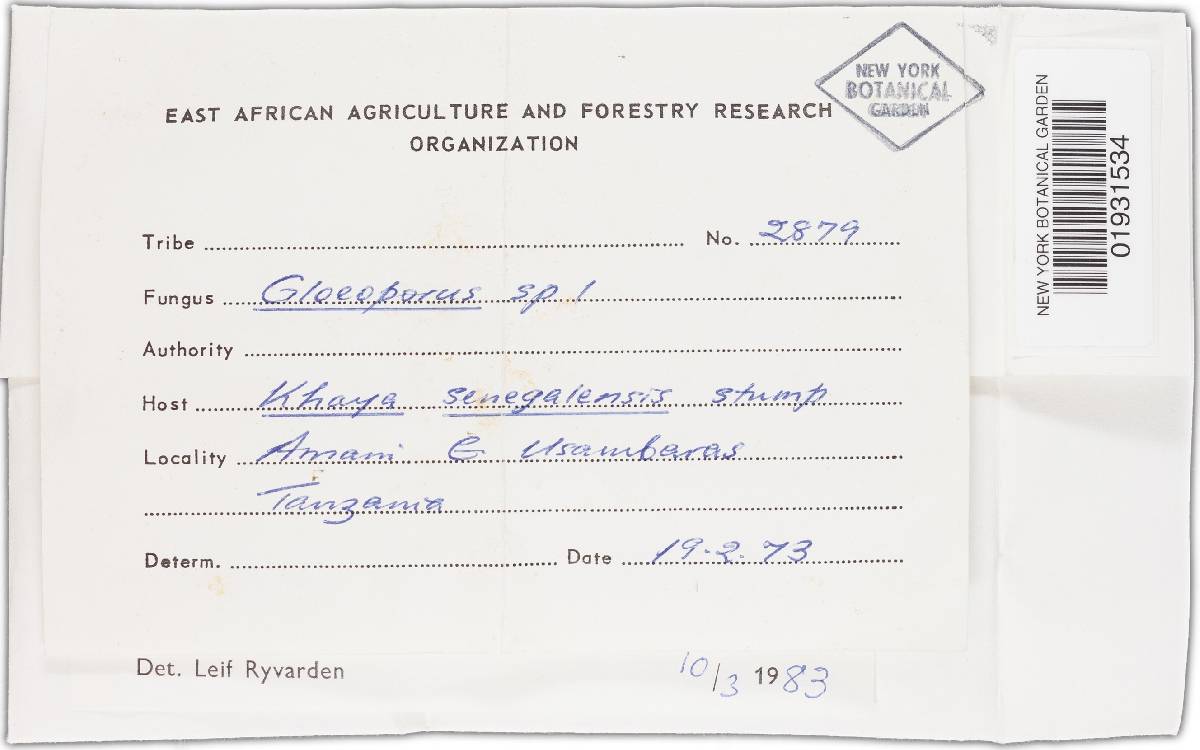 NEW YORK
BOTANICAL
GARDEN
EAST AFRICAN AGRICULTURE AND FORESTRY RESEARCH
ORGANIZATION
Tribe No. 2879
Fungus Gloeoporus sp 1
Authority
Host Khaya senegalensis stump
Locality Amani E Usambaras
Tanzania
Determ. Date 19.2.73
Det. Leif Ryvarden 10/3 1983
NEW YORK BOTANICAL GARDEN
01931534